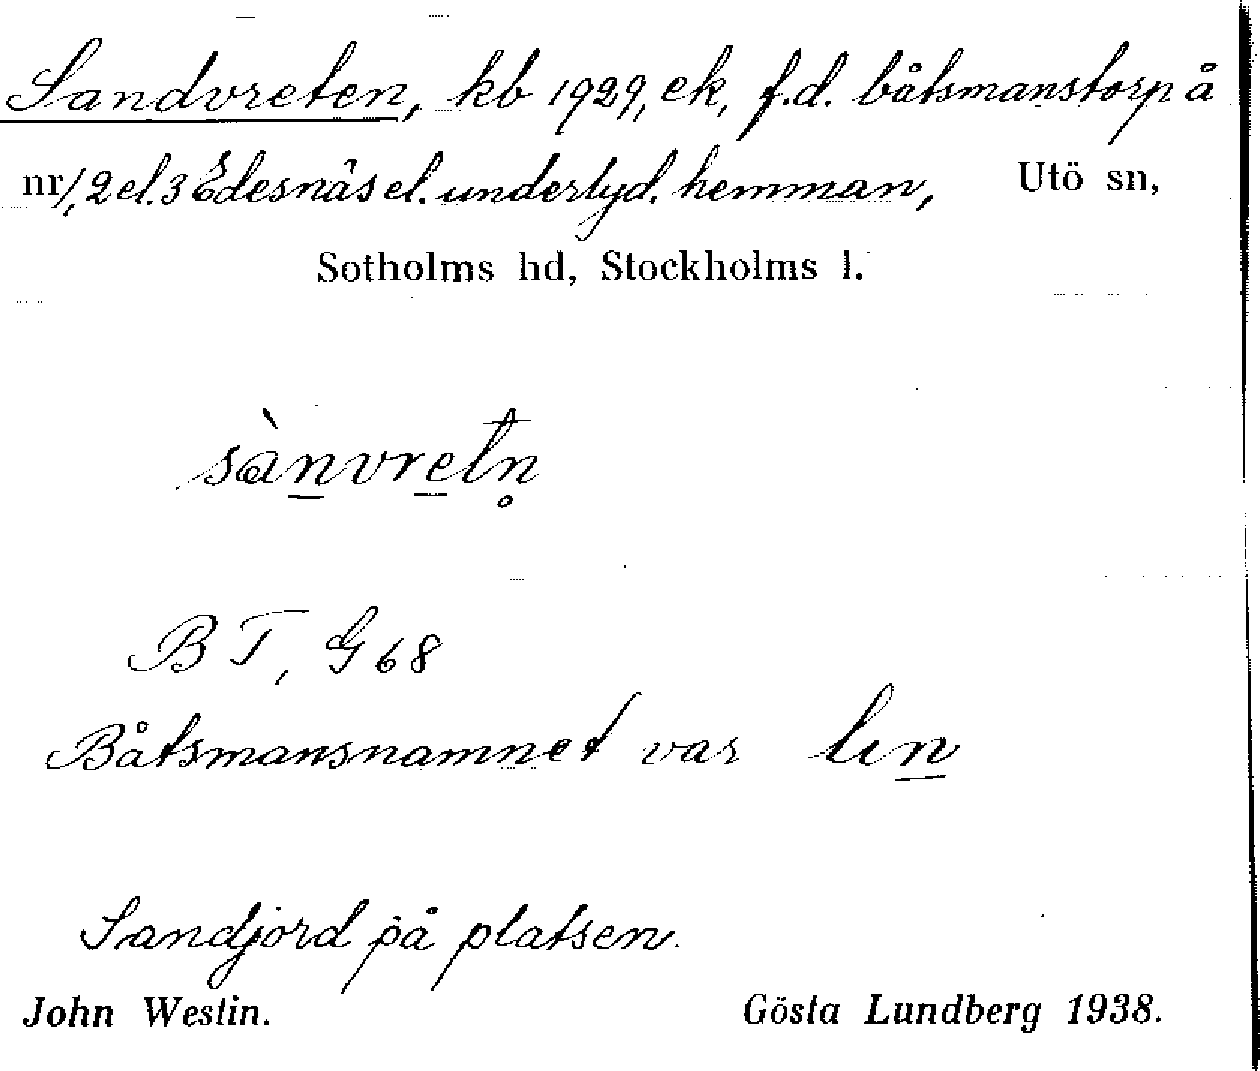 Sandvreten, kb 1929, ek, f.d. båtsmanstorp å
nr 1, 2 el. 3 Edesnäs el. underlyd. hemman, Utö sn,
Sotholms hd, Stockholms l.
sànvretn̥
BT, G 68
Båtsmansnamnet var lın
Sandjord på platsen.
John Westin. Gösta Lundberg 1938.